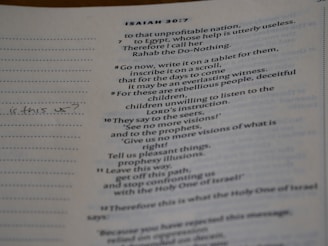 ISAIAH 30:7
to that unprofitable nation,
7 to Egypt, whose help is utterly useless.
Therefore I call her
Rahab the Do-Nothing.
8 Go now, write it on a tablet for them,
inscribe it on a scroll,
that for the days to come
it may be an everlasting witness.
9 For these are rebellious people, deceitful
children,
children unwilling to listen to the
LORD's instruction.
is this us?
10 They say to the seers,
"See no more visions!"
and to the prophets,
"Give us no more visions of what is
right!
Tell us pleasant things,
prophesy illusions.
11 Leave this way,
get off this path,
and stop confronting us
with the Holy One of Israel!"
12 Therefore this is what the Holy One of Israel
says:
"Because you have rejected this message,
relied on oppression